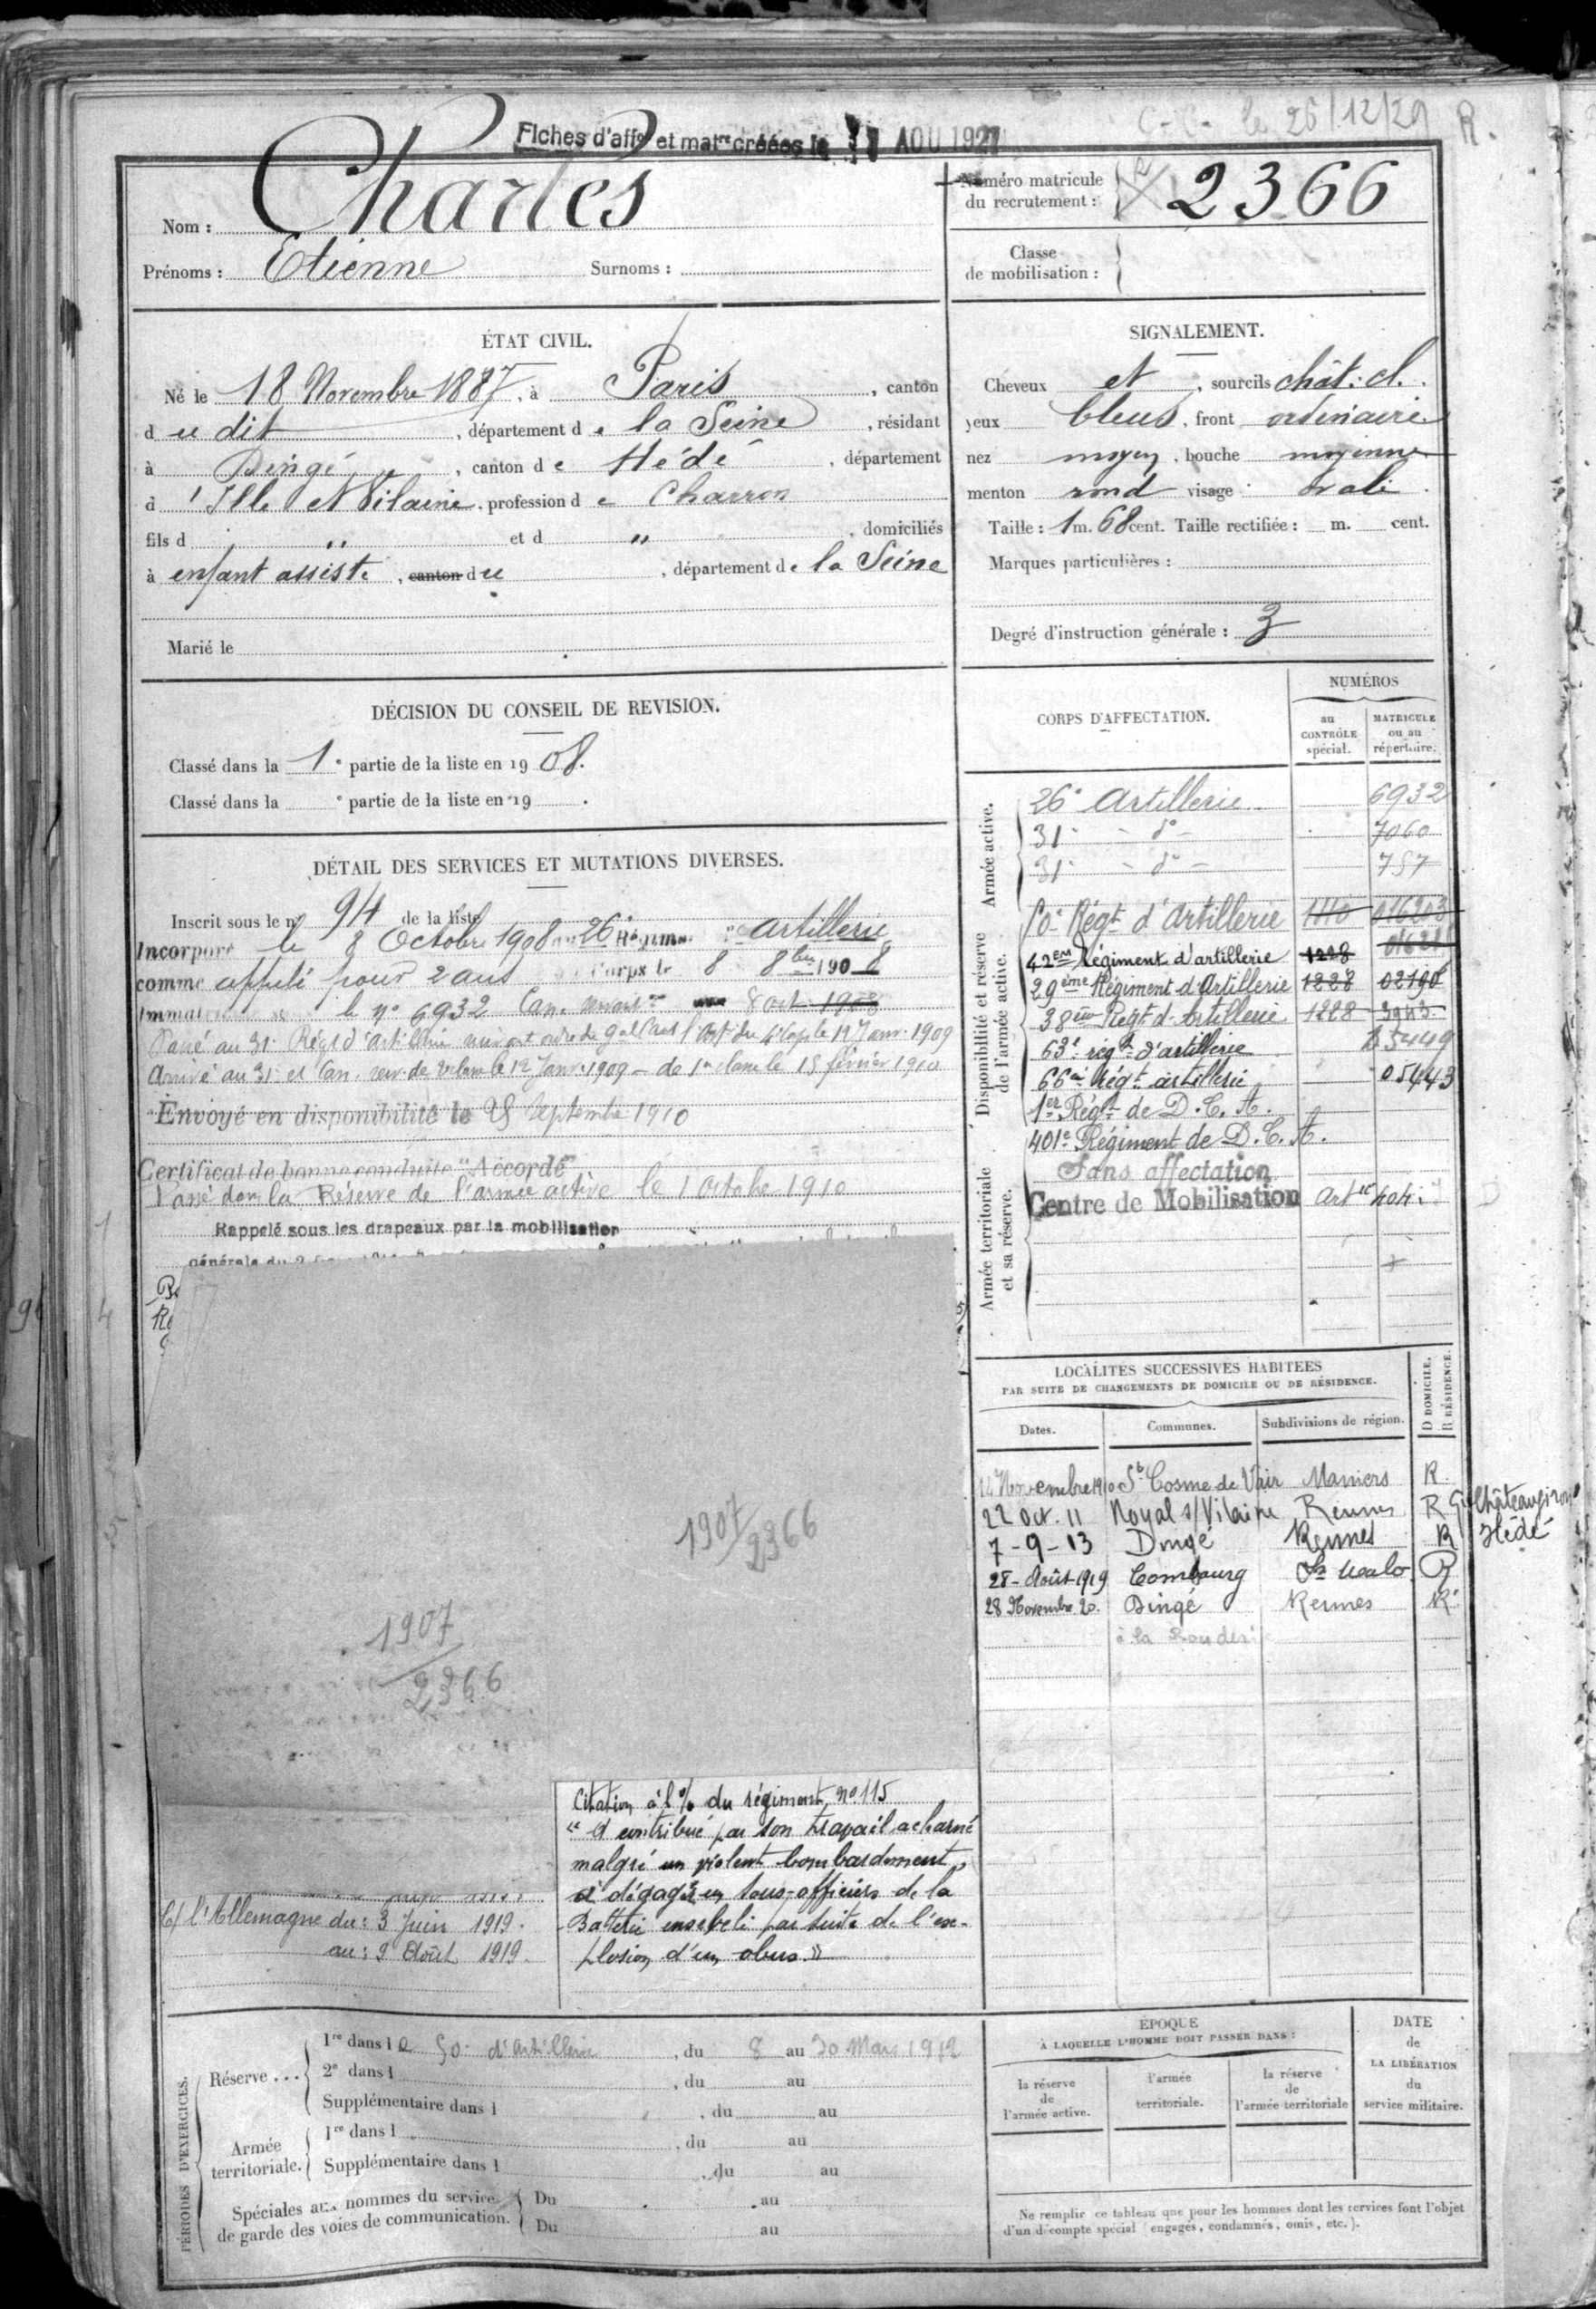 C.C. le 26/12/29 R.
Fiches d'aff° et matre créées le AOU 1927
Nom : Charles
Prénoms : Etienne Surnoms :
Numéro matricule du recrutement : 2366
Classe de mobilisation :
ÉTAT CIVIL.
Né le 18 Novembre 1887, à Paris, canton
du dit, département de la Seine, résidant
à Dingé, canton de Hédé, département
d'Ille et Vilaine, profession de Charron
fils d " et d ", domiciliés
à enfant assisté, canton du, département de la Seine
Marié le
SIGNALEMENT.
Cheveux et, sourcils chât: cl.
yeux bleus, front ordinaire
nez moyen, bouche moyenne
menton rond visage ovale.
Taille : 1 m. 68 cent. Taille rectifiée : m. cent.
Marques particulières :
Degré d'instruction générale : 3
DÉCISION DU CONSEIL DE REVISION.
Classé dans la 1e partie de la liste en 1908.
Classé dans la e partie de la liste en 19 .
DÉTAIL DES SERVICES ET MUTATIONS DIVERSES.
Inscrit sous le n° 94 de la liste
Incorporé le 8 Octobre 1908 au 26e Régiment Artillerie
comme appelé pour 2 ans Corps le 8 8bre 1908
le n° 6932 Can. 8 oct. 1908
Passé au 31e Régt d'artillerie suivant ordre du Gal l'Art du 4e Corps le 12 Janv. 1909
Arrivé au 31e et Can. serv. le 12 Janv. 1909 - de 1re classe le 15 février 1910
Envoyé en disponibilité le 25 Septembre 1910
Certificat de bonne conduite "Accordé"
Passé dans la Réserve de l'armée active le 1 Octobre 1910
Rappelé sous les drapeaux par la mobilisation
générale du 2
1907/2366
1907/2366
C/ l'Allemagne du : 3 Juin 1919.
au : 2 Août 1919.
Citation à l'% du régiment, n° 115
" A contribué par son travail acharné
malgré un violent bombardement,
à dégager un sous-officier de la
Batterie enseveli par suite de l'ex-
plosion d'un obus. "
CORPS D'AFFECTATION.
NUMÉROS
au CONTRÔLE spécial.
MATRICULE ou au répertoire.
Armée active.
26e Artillerie 6932
31e - do - 7060
31e - do - 757
Disponibilité et réserve de l'armée active.
50e Régt d'Artillerie 1110 016203
42em Régiment d'artillerie 1228
29ème Régiment d'Artillerie 1228 02190
38ème Regt d'Artillerie 1228 3943
63e régt d'artillerie 5449
66e Régt artillerie 05443
1er Régt de D.C.A.
401e Régiment de D.C.A.
Armée territoriale et sa réserve.
Sans affectation
Centre de Mobilisation Artie 404
LOCALITÉS SUCCESSIVES HABITÉES
PAR SUITE DE CHANGEMENTS DE DOMICILE OU DE RÉSIDENCE.
Dates. Communes. Subdivisions de région. D DOMICILE. R RÉSIDENCE.
14 Novembre 1910 St Cosme de Vair Mamers R.
22 oct. 11 Noyal s/Vilaine Rennes R Châteaugiron
7-9-13 Dingé Rennes R Hédé
28 - Août 1919 Combourg St Malo R
28 Novembre 20. Dingé Rennes R
à la
PÉRIODES D'EXERCICES.
Réserve... 1re dans le 50e d'artillerie, du 8 au 30 Mars 1912
2e dans l , du au
Supplémentaire dans l , du au
Armée territoriale. 1re dans l , du au
Supplémentaire dans l , du au
Spéciales aux hommes du service de garde des voies de communication. Du au
Du au
ÉPOQUE
À LAQUELLE L'HOMME DOIT PASSER DANS :
la réserve de l'armée active.
l'armée territoriale.
la réserve de l'armée territoriale
DATE de LA LIBÉRATION du service militaire.
Ne remplir ce tableau que pour les hommes dont les services font l'objet
d'un décompte spécial (engagés, condamnés, omis, etc.).